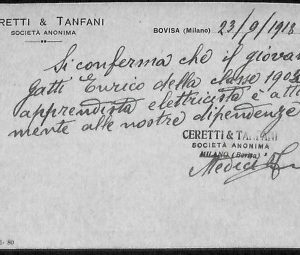 RETTI & TANFANI
SOCIETÀ ANONIMA
BOVISA (Milano) 23/9/1918
Si conferma che il giovan
Gatti Enrico della classe 190
apprendista elettricista è atti
mente alle nostre dipendenze
CERETTI & TANFANI
SOCIETÀ ANONIMA
MILANO (Bovisa)